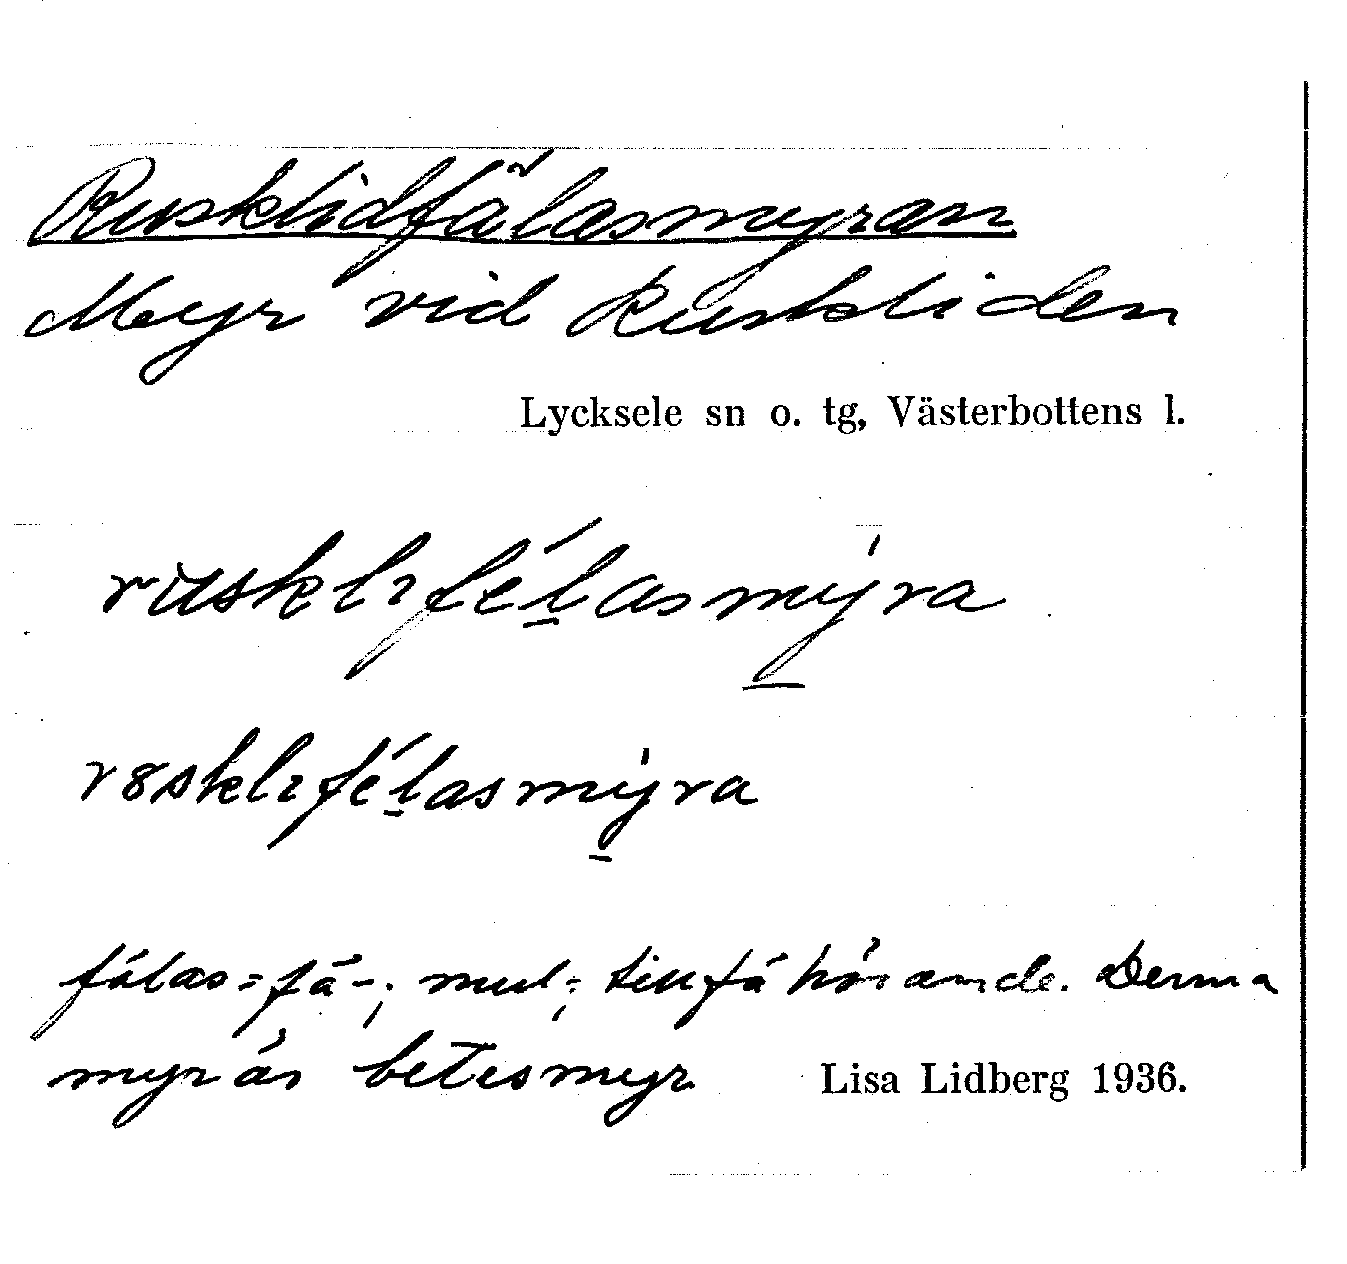 Rusklidfälasmyran
Myr vid Ruskliden
Lycksele sn o. tg, Västerbottens l.
rusklıfélasmýra
rɤsklıfélasmýra
fälas = fä-, mul-, till fä hörande. Denna
myr är betesmyr
Lisa Lidberg 1936.